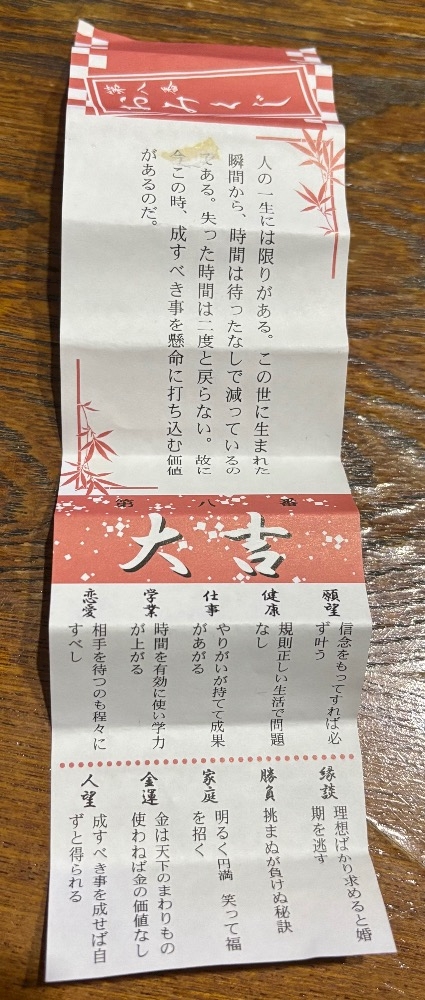 第八番
おみくじ
人の一生には限りがある。この世に生まれた
瞬間から、時間は待ったなしで減っているの
である。失った時間は二度と戻らない。故に
今この時、成すべき事を懸命に打ち込む価値
があるのだ。
第八番
大吉
願望
信念をもってすれば必
ず叶う
健康
規則正しい生活で問題
なし
仕事
やりがいが持てて成果
があがる
学業
時間を有効に使い学力
が上がる
恋愛
相手を待つのも程々に
すべし
縁談
理想ばかり求めると婚
期を逃す
勝負
挑まぬが負けぬ秘訣
家庭
明るく円満 笑って福
を招く
金運
金は天下のまわりもの
使わねば金の価値なし
人望
成すべき事を成せば自
ずと得られる